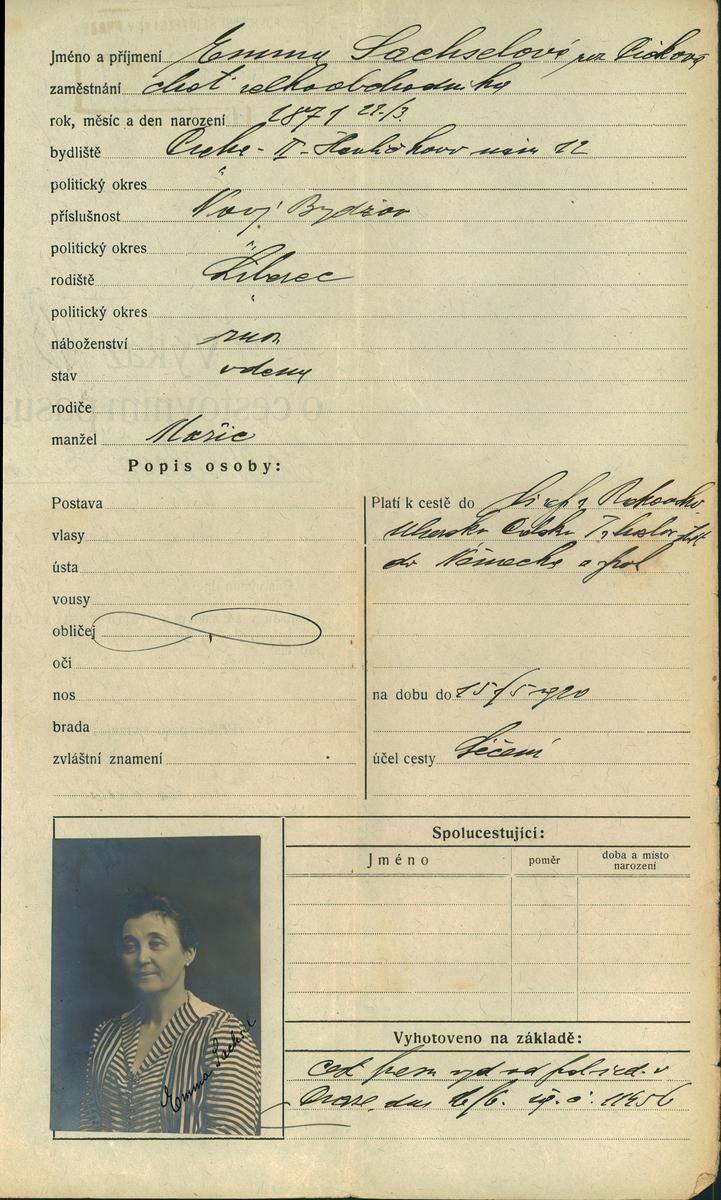 Jméno a příjmení Emma Sachselová roz. Picková
zaměstnání choť velkoobchodníka
rok, měsíc a den narození 1871 22/3
bydliště Praha - II - Havlíčkovo nám 12
politický okres "
příslušnost Nový Bydžov
politický okres "
rodiště Liberec
politický okres "
náboženství
stav vdaná
rodiče
manžel Mořic
Popis osoby:
Postava
vlasy
ústa
vousy
obličej
oči
nos
brada
zvláštní znamení
Platí k cestě do Rakouska
Uherska
do Německa a
na dobu do 15/5 1920
účel cesty Léčení
Spolucestující:
Jméno
poměr
doba a místo
narození
Emma Sachsel
Vyhotoveno na základě:
cest
Praze, dne